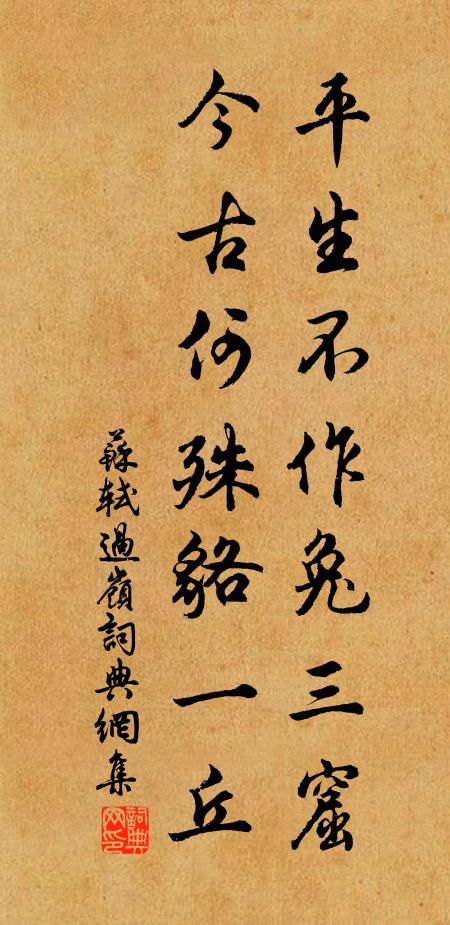 平生不作兔三窟
今古何殊貉一丘
蘇軾過嶺詞典網集
詞典网印